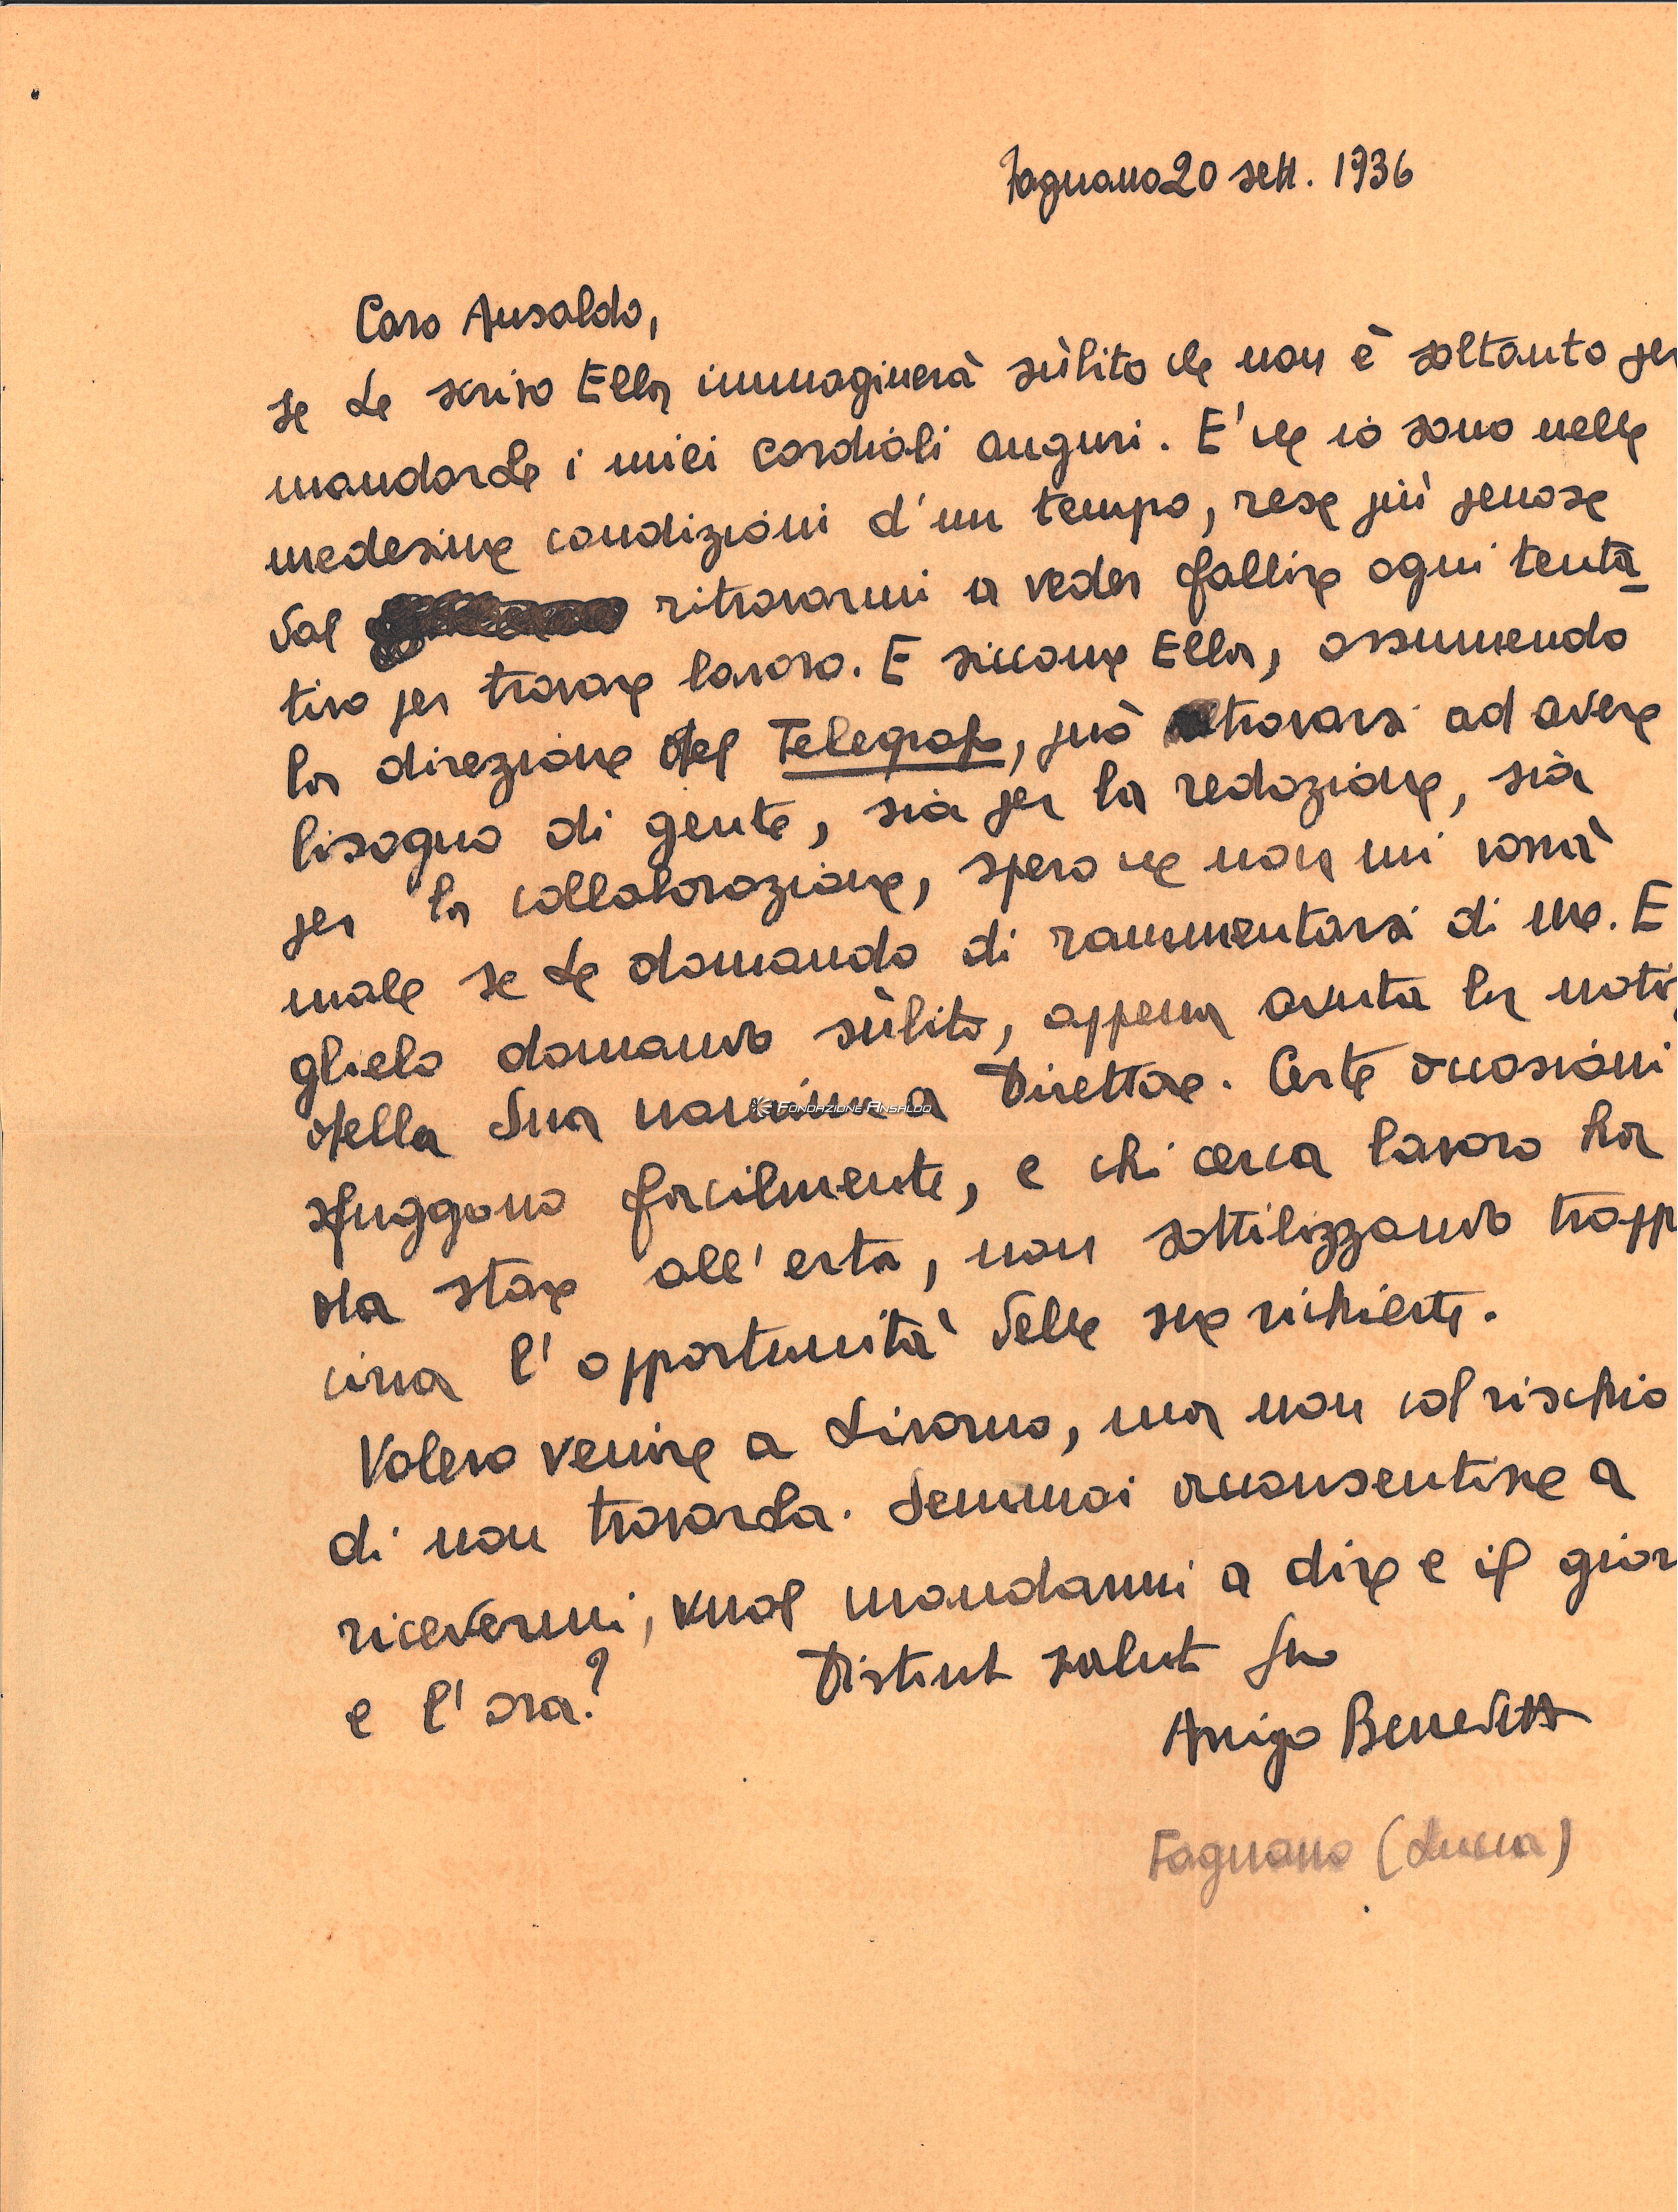 Fagnano 20 sett. 1936
Caro Ansaldo,
se Le scrivo Ella immaginerà sùbito che non è soltanto per
mandarLe i miei cordiali auguri. E' che io sono nelle
medesime condizioni d'un tempo, rese più penose
dal ritrovarmi a veder fallire ogni tenta
tivo per trovare lavoro. E siccome Ella, assumendo
la direzione del Telegrafo, può trovarsi ad avere
bisogno di gente, sia per la redazione, sia
per la collaborazione, spero che non mi vorrà
male se Le domando di rammentarsi di me. E
glielo domando sùbito, appena avuta la noti
della Sua nomina a Direttore. Certe occasioni
sfuggono facilmente, e chi cerca lavoro ha
da stare all'erta, non sottilizzando tropp
circa l'opportunità delle sue richieste.
Volevo venire a Livorno, ma non col rischio
di non trovarLa. Semmai acconsentisse a
ricevermi, vuol mandarmi a dire e il gior
e l'ora? Distinti saluti Suo
Arrigo Benedetti
Fagnano (Lucca)
FONDAZIONE ANSALDO